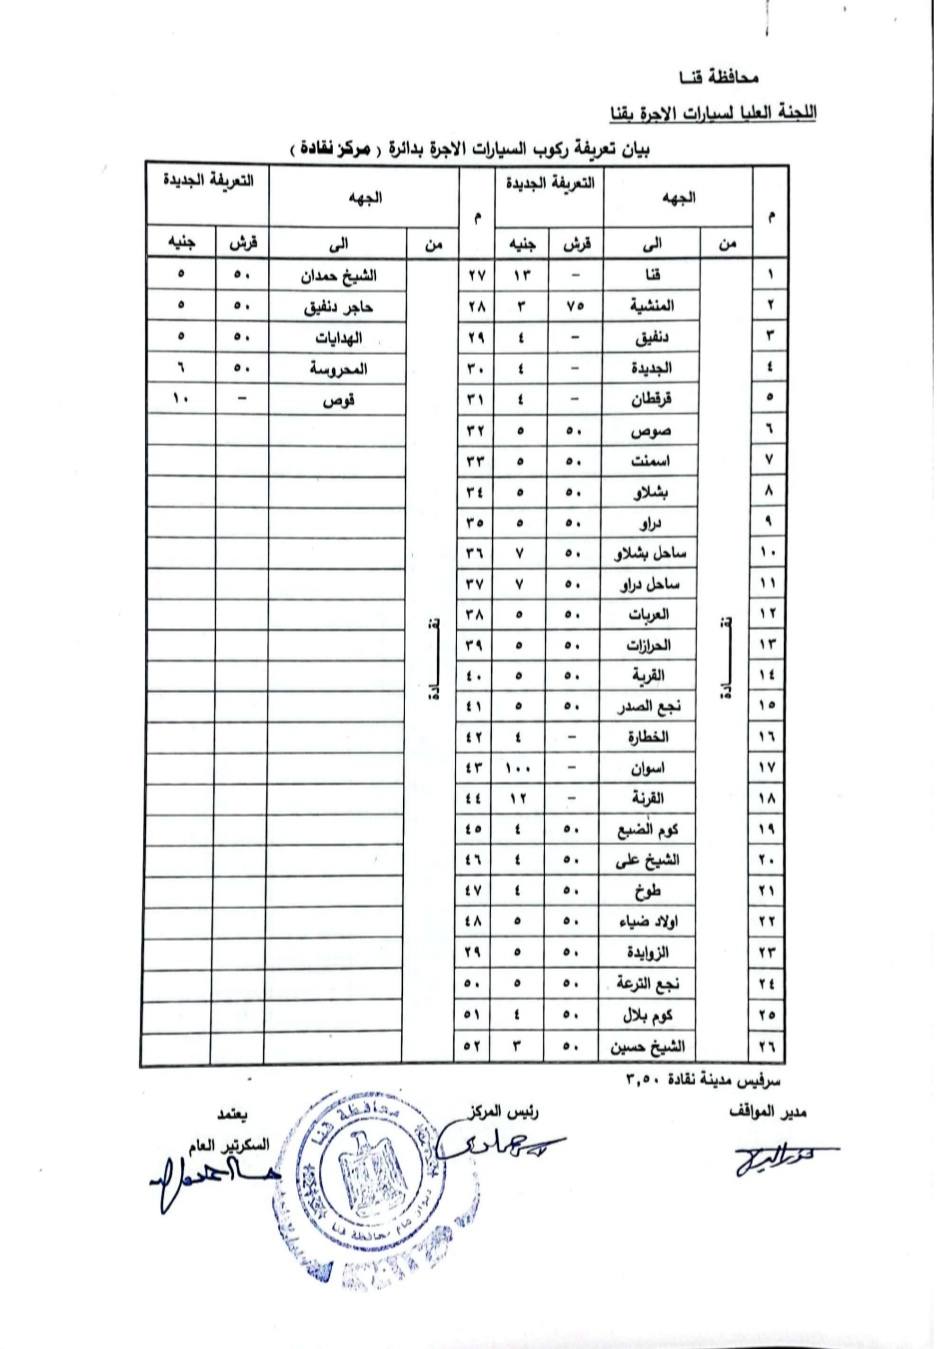 محافظة قنا
اللجنة العليا لسيارات الاجرة بقنا
بيان تعريفة ركوب السيارات الاجرة بدائرة ( مركز نقادة )
م الجهه التعريفة الجديدة م الجهه التعريفة الجديدة
من الى قرش جنيه من الى قرش جنيه
نقــــــادة نقــــــادة
١ قنا - ١٣ ٢٧ الشيخ حمدان ٥٠ ٥
٢ المنشية ٧٥ ٣ ٢٨ حاجر دنفيق ٥٠ ٥
٣ دنفيق - ٤ ٢٩ الهدايات ٥٠ ٥
٤ الجديدة - ٤ ٣٠ المحروسة ٥٠ ٦
٥ قرقطان - ٤ ٣١ قوص - ١٠
٦ صوص ٥٠ ٥ ٣٢
٧ اسمنت ٥٠ ٥ ٣٣
٨ بشلاو ٥٠ ٥ ٣٤
٩ دراو ٥٠ ٥ ٣٥
١٠ ساحل بشلاو ٥٠ ٧ ٣٦
١١ ساحل دراو ٥٠ ٧ ٣٧
١٢ العربات ٥٠ ٥ ٣٨
١٣ الحرازات ٥٠ ٥ ٣٩
١٤ القرية ٥٠ ٥ ٤٠
١٥ نجع الصدر ٥٠ ٥ ٤١
١٦ الخطارة - ٤ ٤٢
١٧ اسوان - ١٠٠ ٤٣
١٨ القرنة - ١٢ ٤٤
١٩ كوم الضبع ٥٠ ٤ ٤٥
٢٠ الشيخ على ٥٠ ٤ ٤٦
٢١ طوخ ٥٠ ٤ ٤٧
٢٢ اولاد ضياء ٥٠ ٥ ٤٨
٢٣ الزوايدة ٥٠ ٥ ٢٩
٢٤ نجع الترعة ٥٠ ٥ ٥٠
٢٥ كوم بلال ٥٠ ٤ ٥١
٢٦ الشيخ حسين ٥٠ ٣ ٥٢
سرفيس مدينة نقادة ٣,٥٠
مدير المواقف رئيس المركز يعتمد
السكرتير العام
محافظة قنا
ديوان عام محافظة قنا